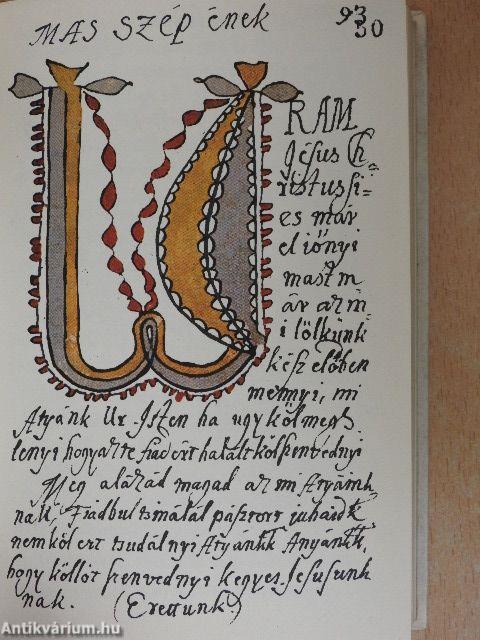 MAS SZÉP ÉNEK
93
50
U RAM
Jésus Ch
ristus si=
es már
el iőnyi
mast m
ár az m
i lölkünk
kész előben
mennyi, mi
Atyánk Ur-Isten ha ugy köl megh
lenyi hogy azte fiadért halált köl szenvednyi
Meg alázád magad az mi Atyáink=
nak, Fiadbul tsinálál pásztort juhaidk
nem köl ezt tsudálnyi Atyánkk Anyánkk,
hogy köllöt szenvednyi kegyes Jésusunk
nak. (Erettunk)
Antikvárium.hu